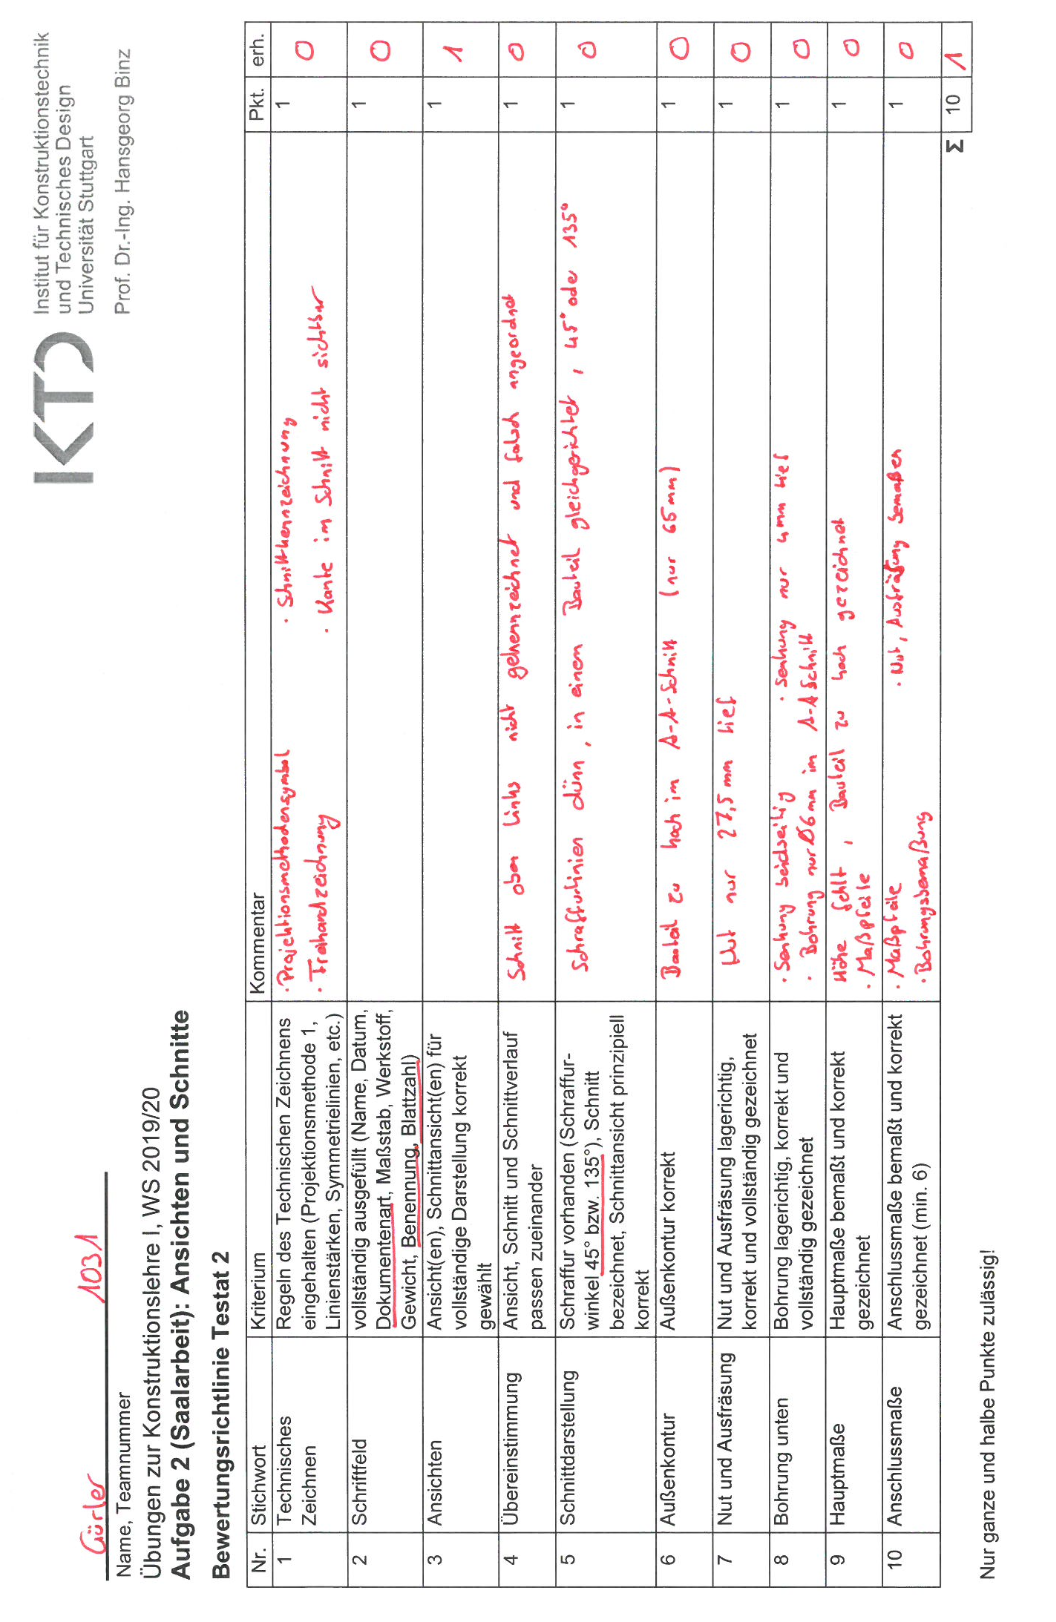 KTD
Institut für Konstruktionstechnik
und Technisches Design
Universität Stuttgart
Prof. Dr.-Ing. Hansgeorg Binz
Gürler 1031
Name, Teamnummer
Übungen zur Konstruktionslehre I, WS 2019/20
Aufgabe 2 (Saalarbeit): Ansichten und Schnitte
Bewertungsrichtlinie Testat 2
Nr. Stichwort Kriterium Kommentar Pkt. erh.
1 Technisches Zeichnen
Regeln des Technischen Zeichnens
eingehalten (Projektionsmethode 1,
Linienstärken, Symmetrielinien, etc.)
· Projektionsmethodensymbol · Schnittkennzeichnung
· Freihandzeichnung · Kante im Schnitt nicht sichtbar
1 0
2 Schriftfeld
vollständig ausgefüllt (Name, Datum,
Dokumentenart, Maßstab, Werkstoff,
Gewicht, Benennung, Blattzahl)
1 0
3 Ansichten
Ansicht(en), Schnittansicht(en) für
vollständige Darstellung korrekt
gewählt
1 1
4 Übereinstimmung
Ansicht, Schnitt und Schnittverlauf
passen zueinander
Schnitt oben links nicht gekennzeichnet und falsch angeordnet
1 0
5 Schnittdarstellung
Schraffur vorhanden (Schraffur-
winkel 45° bzw. 135°), Schnitt
bezeichnet, Schnittansicht prinzipiell
korrekt
Schraffurlinien dünn, in einem Bauteil gleichgerichtet, 45° oder 135°
1 0
6 Außenkontur
Außenkontur korrekt
Bauteil zu hoch im A-A-Schnitt (nur 65mm)
1 0
7 Nut und Ausfräsung
Nut und Ausfräsung lagerichtig,
korrekt und vollständig gezeichnet
Nut nur 27,5 mm tief
1 0
8 Bohrung unten
Bohrung lagerichtig, korrekt und
vollständig gezeichnet
· Senkung beidseitig · Senkung nur 4mm tief
· Bohrung nur Ø6mm im A-A Schnitt
1 0
9 Hauptmaße
Hauptmaße bemaßt und korrekt
gezeichnet
Höhe fehlt, Bauteil zu hoch gezeichnet
· Maßpfeile
1 0
10 Anschlussmaße
Anschlussmaße bemaßt und korrekt
gezeichnet (min. 6)
· Maßpfeile · Nut, Ausfräsung bemaßen
· Bohrungsbemaßung
1 0
Σ 10 1
Nur ganze und halbe Punkte zulässig!